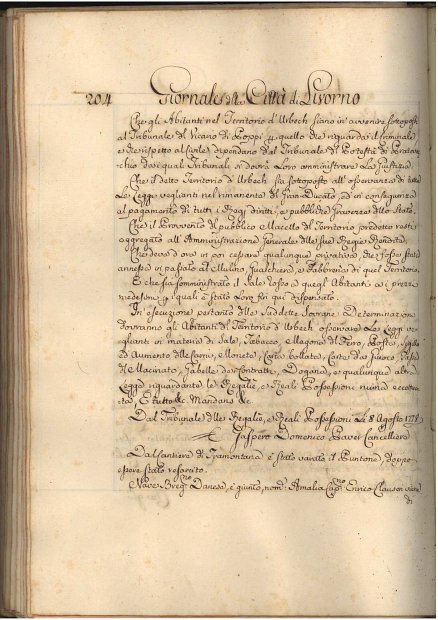 204 Giornale della Città di Livorno
Che gli Abitanti nel Territorio d'Urbech siano in avvenire sottoposti
al Tribunale del Vicario di Poppi p. quello che riguarda il criminale
e che rispetto al civile dipendano dal Tribunale del Potestà di
chio da' quali Tribunali si dovrà Loro amministrare La Giustizia.
Che il detto Territorio d'Urbech sia sottoposto all'osservanza di tutte
Le Leggi veglianti nel rimanente del Gran-Ducato, ed in conseguenza
al pagamento di tutti i Regj diritti, e pubbliche gravezze dello Stato.
Che il Provento del pubblico Macello del Territorio predetto resti
aggregato all'Amministrazione Generale delle sue Regie Rendite.
Che deva d'ora in poi cessare qualunque privativa, che fosse stata
annessa in passato al Mulino, Gualchiera, e Fabbrerìa di quel Territorio.
E che sia somministrato il Sale rosso a quegli Abitanti a i prezzi
medesimi p. i quali è stato Loro fin qui dispensato.
In esecuzione pertanto delle suddette Sovrane Determinazioni
dovranno gli Abitanti del Territorio d'Urbech osservare Le Leggi ve-
glianti in materia di Sale, Tabacco, Magona del Ferro, Posta, Sigillo
ed Aumento delle Carni, Monete, Carta bollata, Carte da giuoco, Tassa
del Macinato, Gabelle de' Contratti, Dogana, e qualunque altra
Legge riguardante Le Regalie, e Reali Possessioni niuna eccettua-
ta, E tutto &c. Mandans &c.
Dal Tribunale delle Regalie, e Reali Possessioni Li 8 Agosto 1778
Gaspero Domenico Paver Cancelliere
Dal Cantiere di Tramontana è stato varato il Puntone, dopo
essere stato resarcito.
Nave Breg.no Danese, è giunto, nom.o Amalia Cap.no Enrico Clausen viene
di